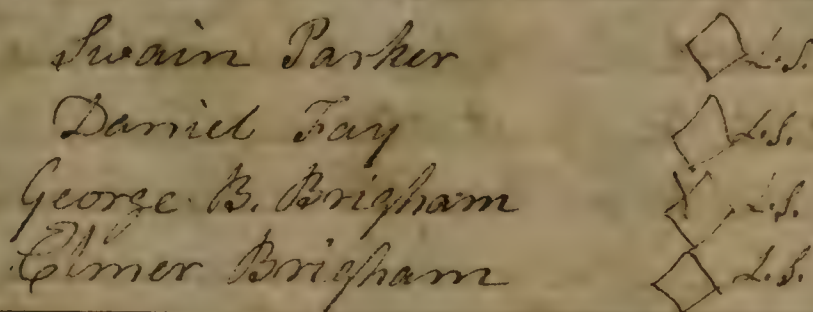 Swain Parker L.S.
Daniel Fay L.S.
George B. Brigham L.S.
Elmer Brigham L.S.